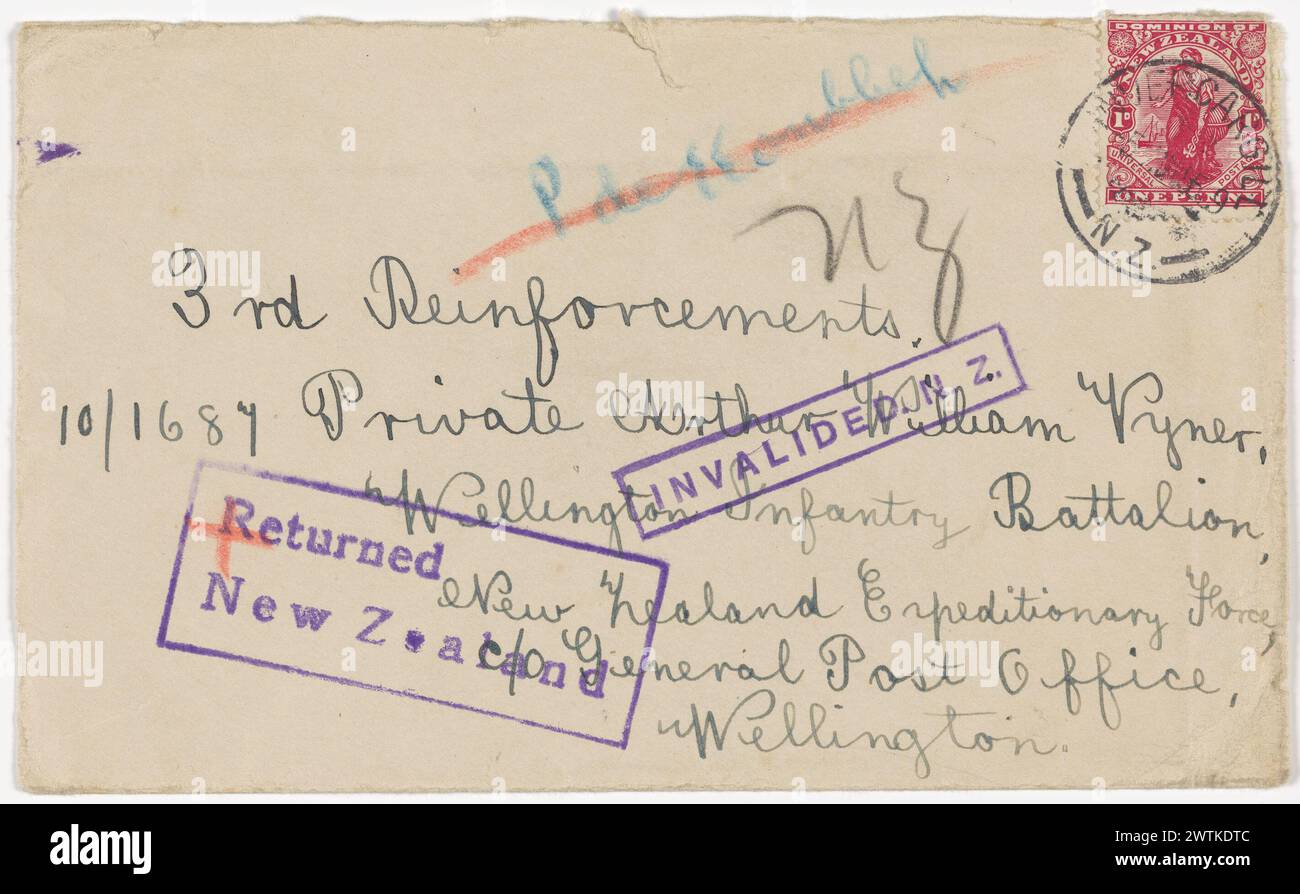 DOMINION OF
NEW ZEALAND
1D 1D
UNIVERSAL POSTAGE
ONE PENNY
INVERCARGILL
N.Z.
N Z
3rd Reinforcements.
10/1687 Private Arthur William Vyner,
Wellington Infantry Battalion,
New Zealand Expeditionary Force,
c/o General Post Office,
Wellington.
INVALIDED. N. Z.
Returned
New Zealand
alamy
Image ID: 2WTKDTC
www.alamy.com